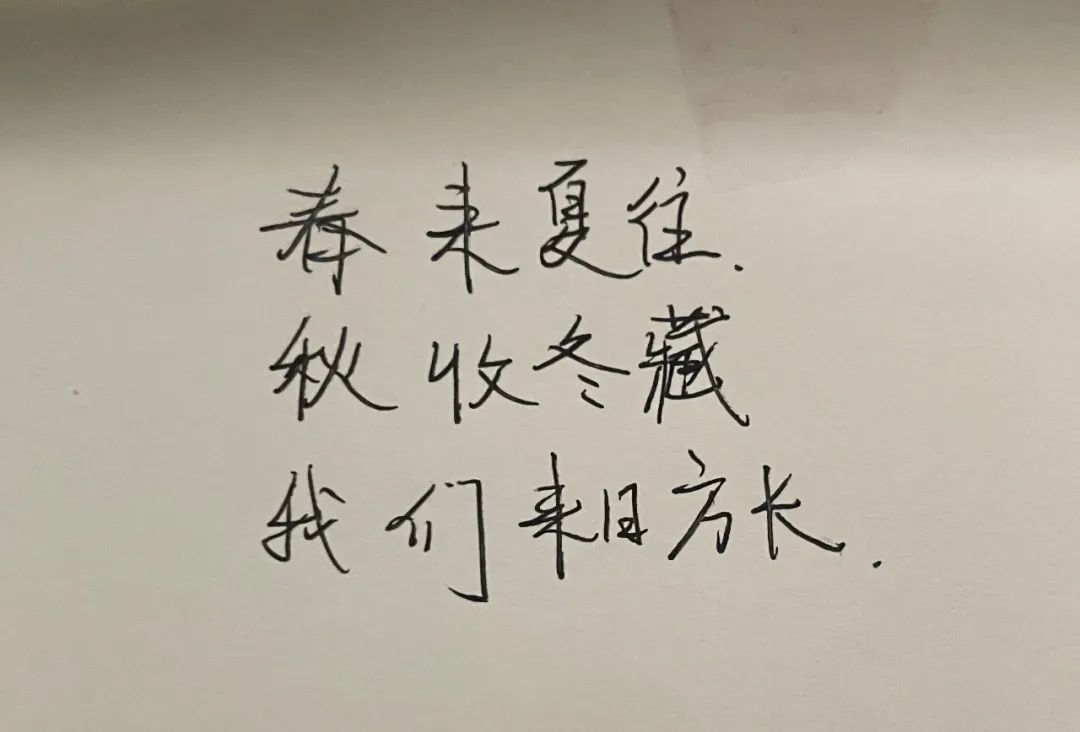 春来夏往.
秋收冬藏
我们来日方长.